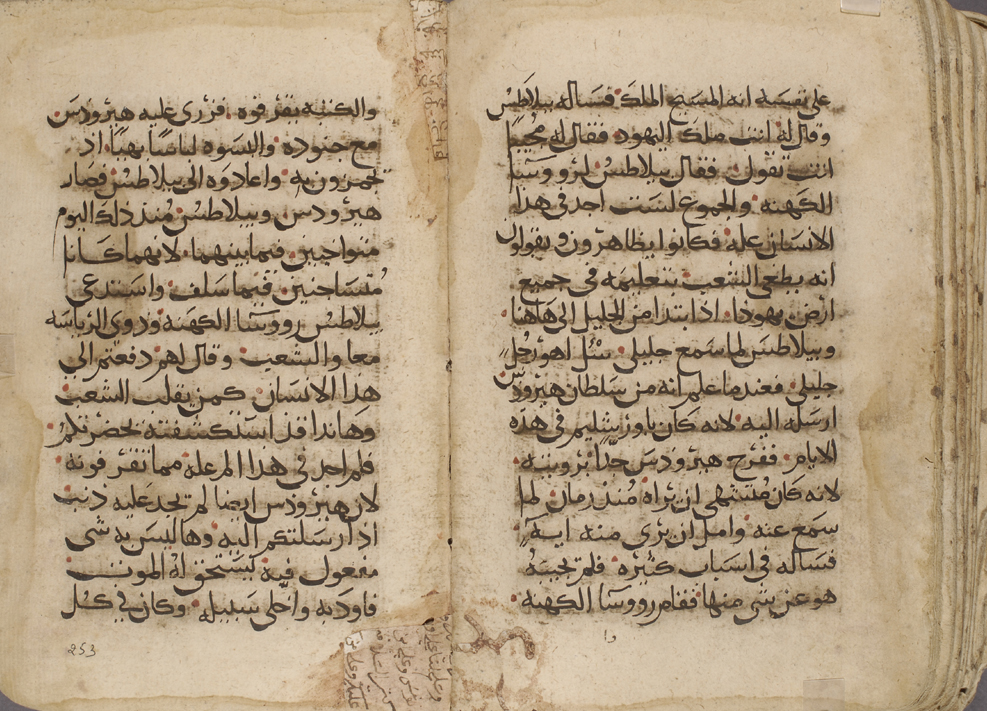 على نفسه انه المسيح الملك فساله بيلاطس
وقال له انت ملك اليهود فقال له مجيبا
انت تقول فقال بيلاطس لروووسا
الكهنه والجموع لست اجد في هذا
الانسان عله فكانوا يظاهرون ويقولون
انه يطغي الشعب بتعليمه في جميع
ارض يهودا اذ ابتدا من الجليل الى هاهنا
وبيلاطس لما سمع جليلي سئل اهو رجل
جليلي فعندما علم انه من سلطان هيرودس
ارسله اليه لانه كان باورشليم في هذه
الايام ففرح هيرودس جدا برويته
لانه كان مشتهى ان يراه منذ زمان لما
سمع عنه وامل ان يرى منه ايه
فساله في اسباب كثيره فلم يجيبه
هو عن شي منها فقام رووسا الكهنه
والكتبه يقرفوه فزرى عليه هيرودس
مع جنوده والبسوه لباسا بهيا اذ
واعادوه الى بيلاطس فصار
هيرودس وبيلاطس منذ ذلك اليوم
متواحبين فيما بينهما لانهما كانا
متشاحنين فيما سلف واستدعى
بيلاطس رووسا الكهنه وذوي الرياسه
معا والشعب وقال لهم دفعتم الي
هذا الانسان كمن يقلب الشعب
وهانذا قد استكشفته بحضرتكم
فلم اجد في هذا المر عله مما تقرفونه
لان هيرودس ايضا لم تجد عليه ذنب
اذ ارسلتكم اليه وها ليس به شي
مفعول فيه يستحق له الموت
فاودبه واخلي سبيله وكان في كل
253